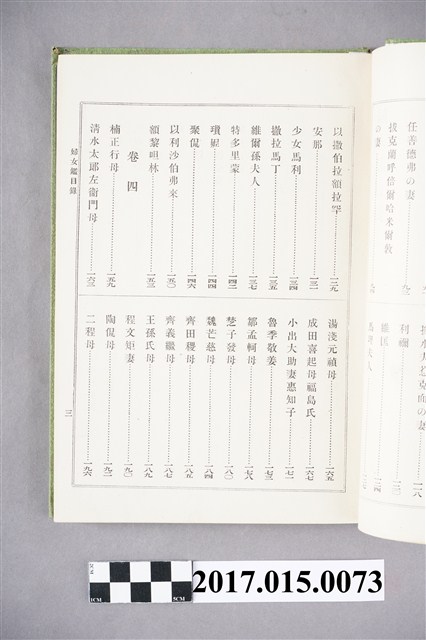 任善德弗の妻
扶克蘭呼倍爾哈米爾敦
の妻
利禰
以撒伯拉額拉罕……一二九
安那……一三一
少女馬利……一三四
撒拉馬丁……一三五
維爾孫夫人……一三七
特多里蒙……一四二
瓚妮……一四四
聚倪……一四六
以利沙伯弗來……一五〇
額黎咀林……一五三
卷四
楠正行母……一五九
清水太郎左衞門母……一六三
湯淺元禎母……一六五
成田喜起母福島氏……一六七
小出大助妻惠知子……一七一
魯季敬姜……一七三
鄒孟軻母……一七八
楚子發母……一八〇
魏芒慈母……一八四
齊田稷母……一八五
齊義繼母……一八七
王孫氏母……一八九
程文矩妻……一九〇
陶侃母……一九二
二程母……一九六
婦女鑑目錄
三
2CM
1CM
5CM
2017.015.0073